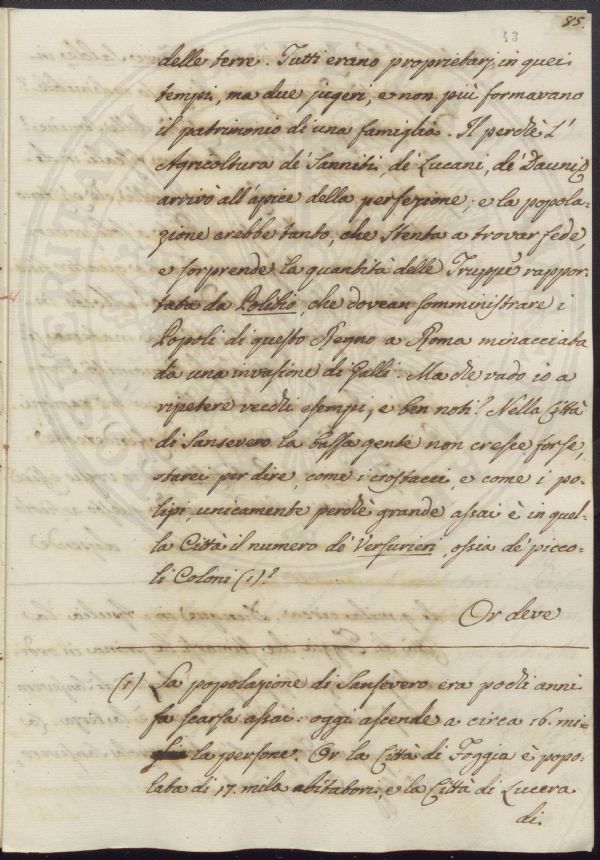 85.
43
delle terre. Tutti erano proprietarj in quei
tempi, ma due jugeri, e non più formavano
il patrimonio di una famiglia. Il perchè l'
Agricoltura de' Sanniti, de' Lucani, de' Daunj
arrivò all'apice della perfezione; e la popola-
zione crebbe tanto, che stenta a trovar fede,
e sorprende la quantità delle Truppe rappor-
tata da Polibio, che dovean somministrare i
Popoli di questo Regno a Roma minacciata
da una invasione di Galli. Ma che vado io a
ripetere vecchi esempi, e ben noti? Nella Città
di Sansevero la bassa gente non cresce forse,
starei per dire, come i crostacci, e come i po-
lipi, unicamente perchè grande assai è in quel-
la Città il numero de' Versurieri, ossia de' picco-
li Coloni (1)?
Or deve
(1) La popolazione di Sansevero era pochi anni
fa scarsa assai: oggi ascende a circa 16. mi-
la persone. Or la Città di Foggia è popo-
lata di 17. mila abitatori, e la Città di Lucera
di